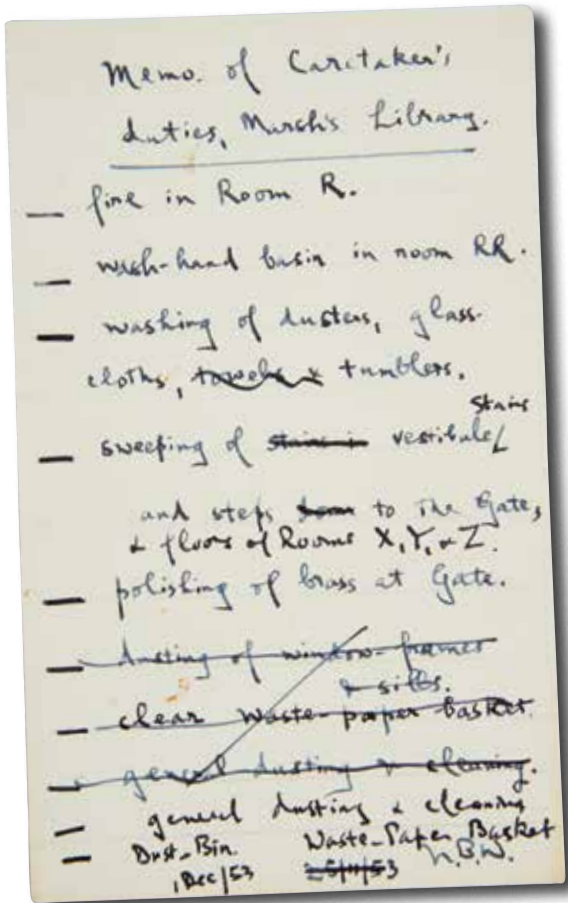 Memo. of Caretaker's
duties, Marsh's Library.
— fire in Room R.
— wash-hand basin in room RR.
— washing of dusters, glass-
cloths, towels & tumblers.
stairs
— sweeping of stairs in vestibule
and steps to the Gate,
& floors of Rooms X, Y, & Z.
— polishing of brass at Gate.
— dusting of window-frames
& sills.
— clear waste-paper basket.
— general dusting & cleaning.
— general dusting & cleaning
— Dust-Bin Waste-Paper Basket
1 Dec/53 25/11/53 N.B.W.